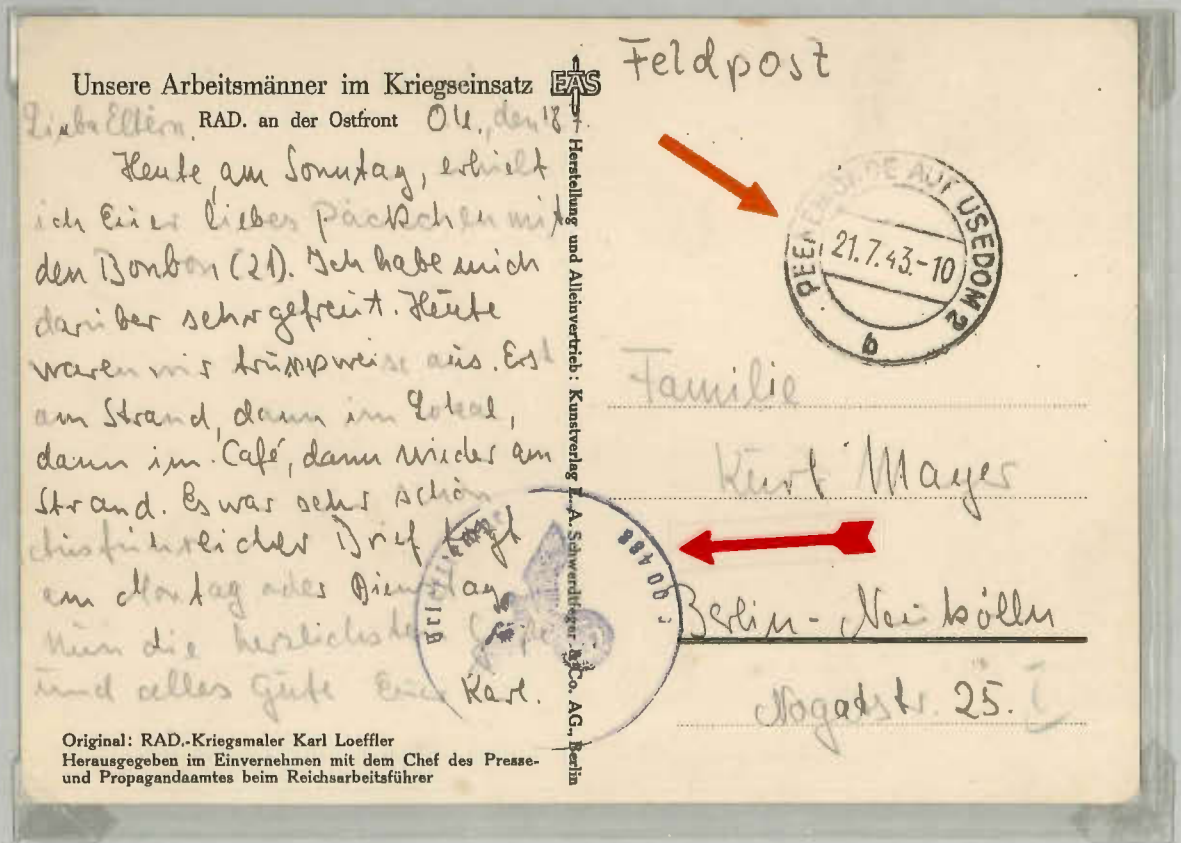 Unsere Arbeitsmänner im Kriegseinsatz
RAD. an der Ostfront
Liebe Eltern, O.U., den 18.7.
Heute, am Sonntag, erhielt
ich Euer liebes Päckchen mit
den Bonbon (21). Ich habe mich
darüber sehr gefreut. Heute
waren wir truppweise aus. Erst
am Strand, dann im Lokal,
dann im Café, dann wieder am
Strand. Es war sehr schön
Ausführlicher Brief folgt
am Montag oder Dienstag.
Nun die herzlichsten
und alles Gute Euer Karl.
Original: RAD.-Kriegsmaler Karl Loeffler
Herausgegeben im Einvernehmen mit dem Chef des Presse-
und Propagandaamtes beim Reichsarbeitsführer
EAS
Herstellung und Alleinvertrieb: Kunstverlag E. A. Schwerdtfeger & Co. AG., Berlin
Feldpost
PEENEMÜNDE AUF USEDOM 2
21.7.43.-10
b
Familie
Kurt Mayer
Berlin-Neukölln
Nogatstr. 25. I
00488